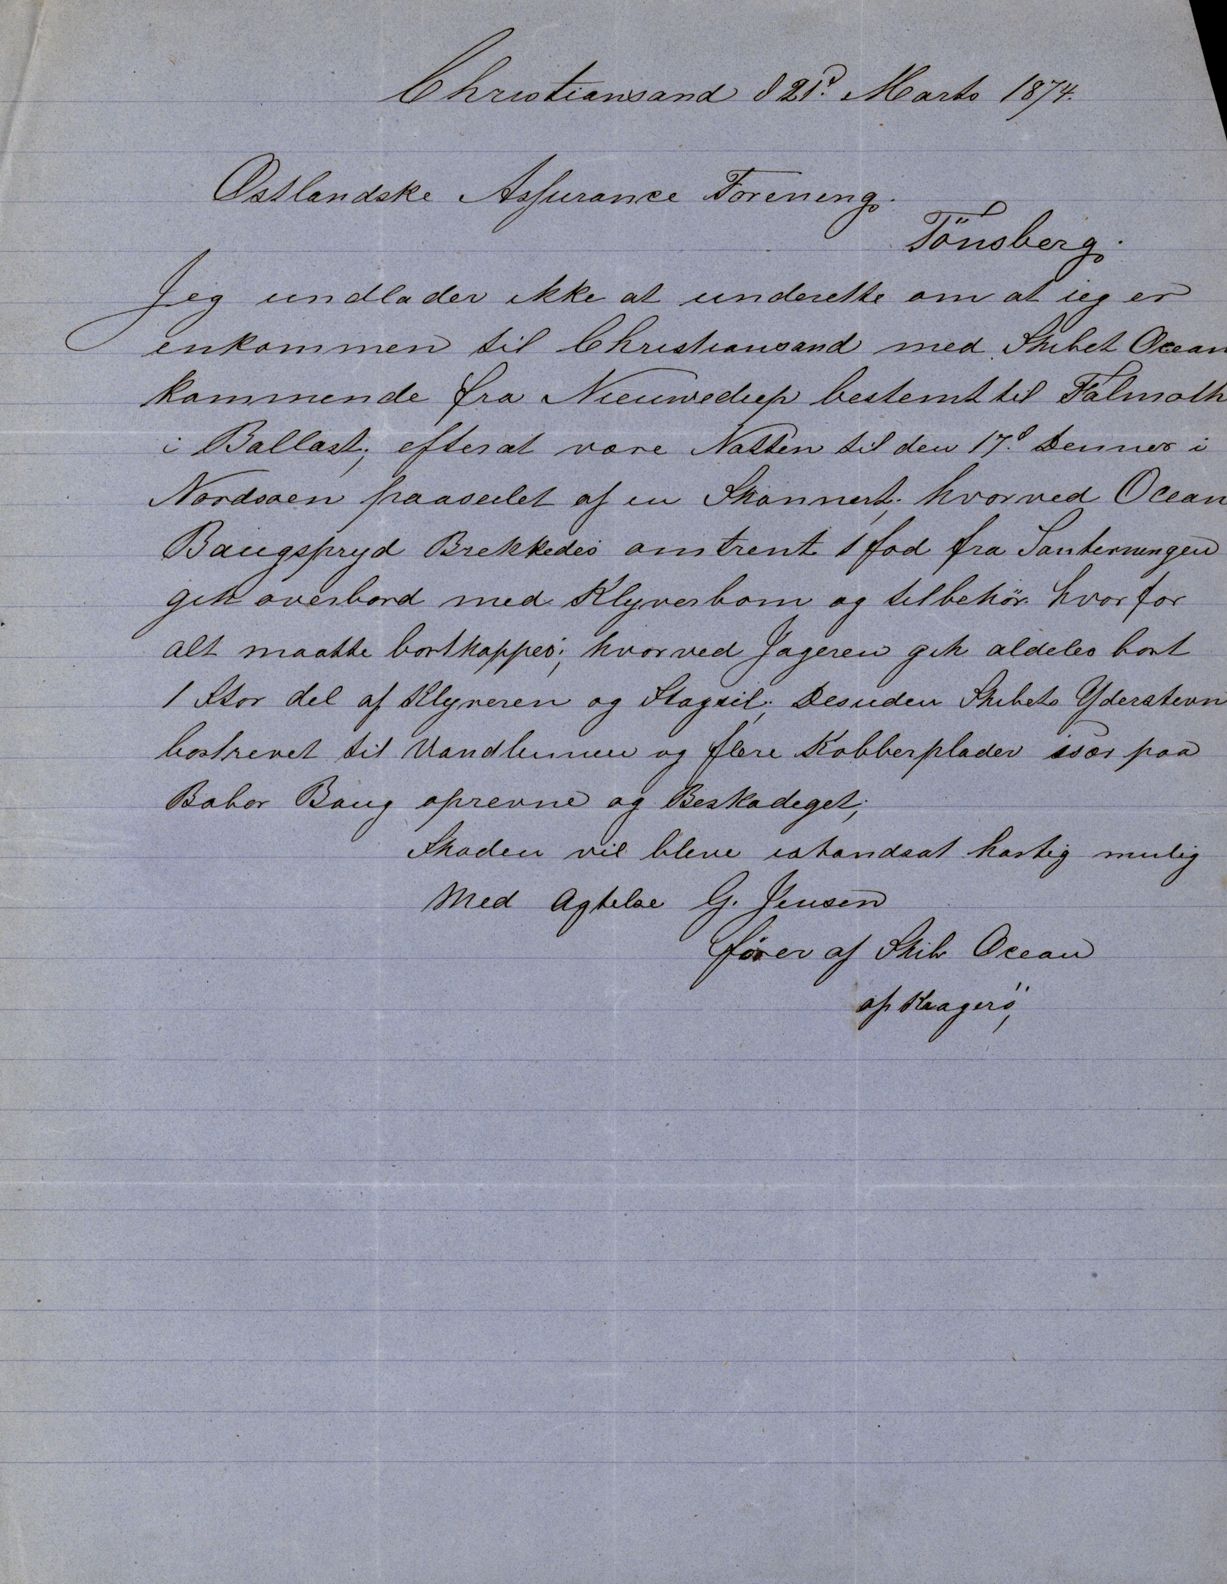 Christiansand d 21d. Marts 1874.
Østlandske Assurance Forening.
Tönsberg.
Jeg undlader ikke at underette om at ieg er
inkommen til Christiansand med Skibet Ocean
kommende fra Nieuwediep bestemt til Falmoth
i Ballast; efter at være Natten til den 17d. Dennes i
Nordsøen paaseilet af en Skonnert; hvorved Ocean
Baugspryd Brekkedes omtrent 1 fod fra Santerningen
gik overbord med Klyverbom og tilbehör. hvorfor
alt maatte bortkappes; hvorved Jageren gik aldeles bort
1 Stor del af Klyveren og Stagseil; Desuden Skibets Yderstevn
bortrevet til Vandlinnien og flere Kobberplader især paa
Babor Baug oprevne og Beskadeget;
Skaden vil blive istandsat hastig mulig
Med Agtelse G. Jensen
fører af Skib Ocean
af Kragerö,